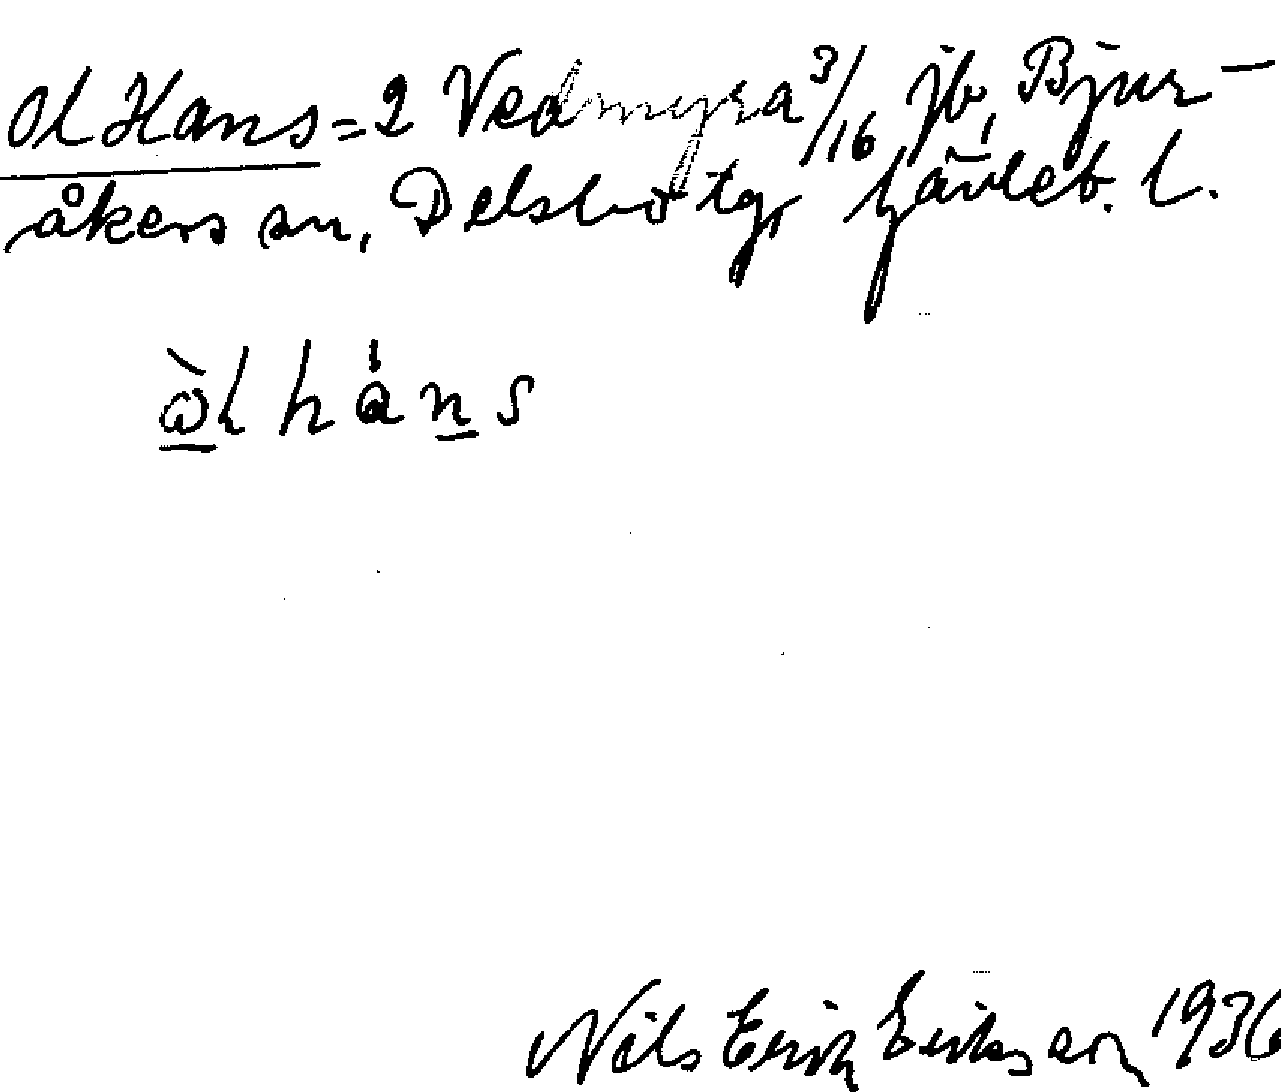 Ol Hans = 2 Vedmyra 3/16 jb, Bjur-
åkers sn, Delsbo tg, Gävleb. l.
òl hans
Nils Erik Eriksson 1936